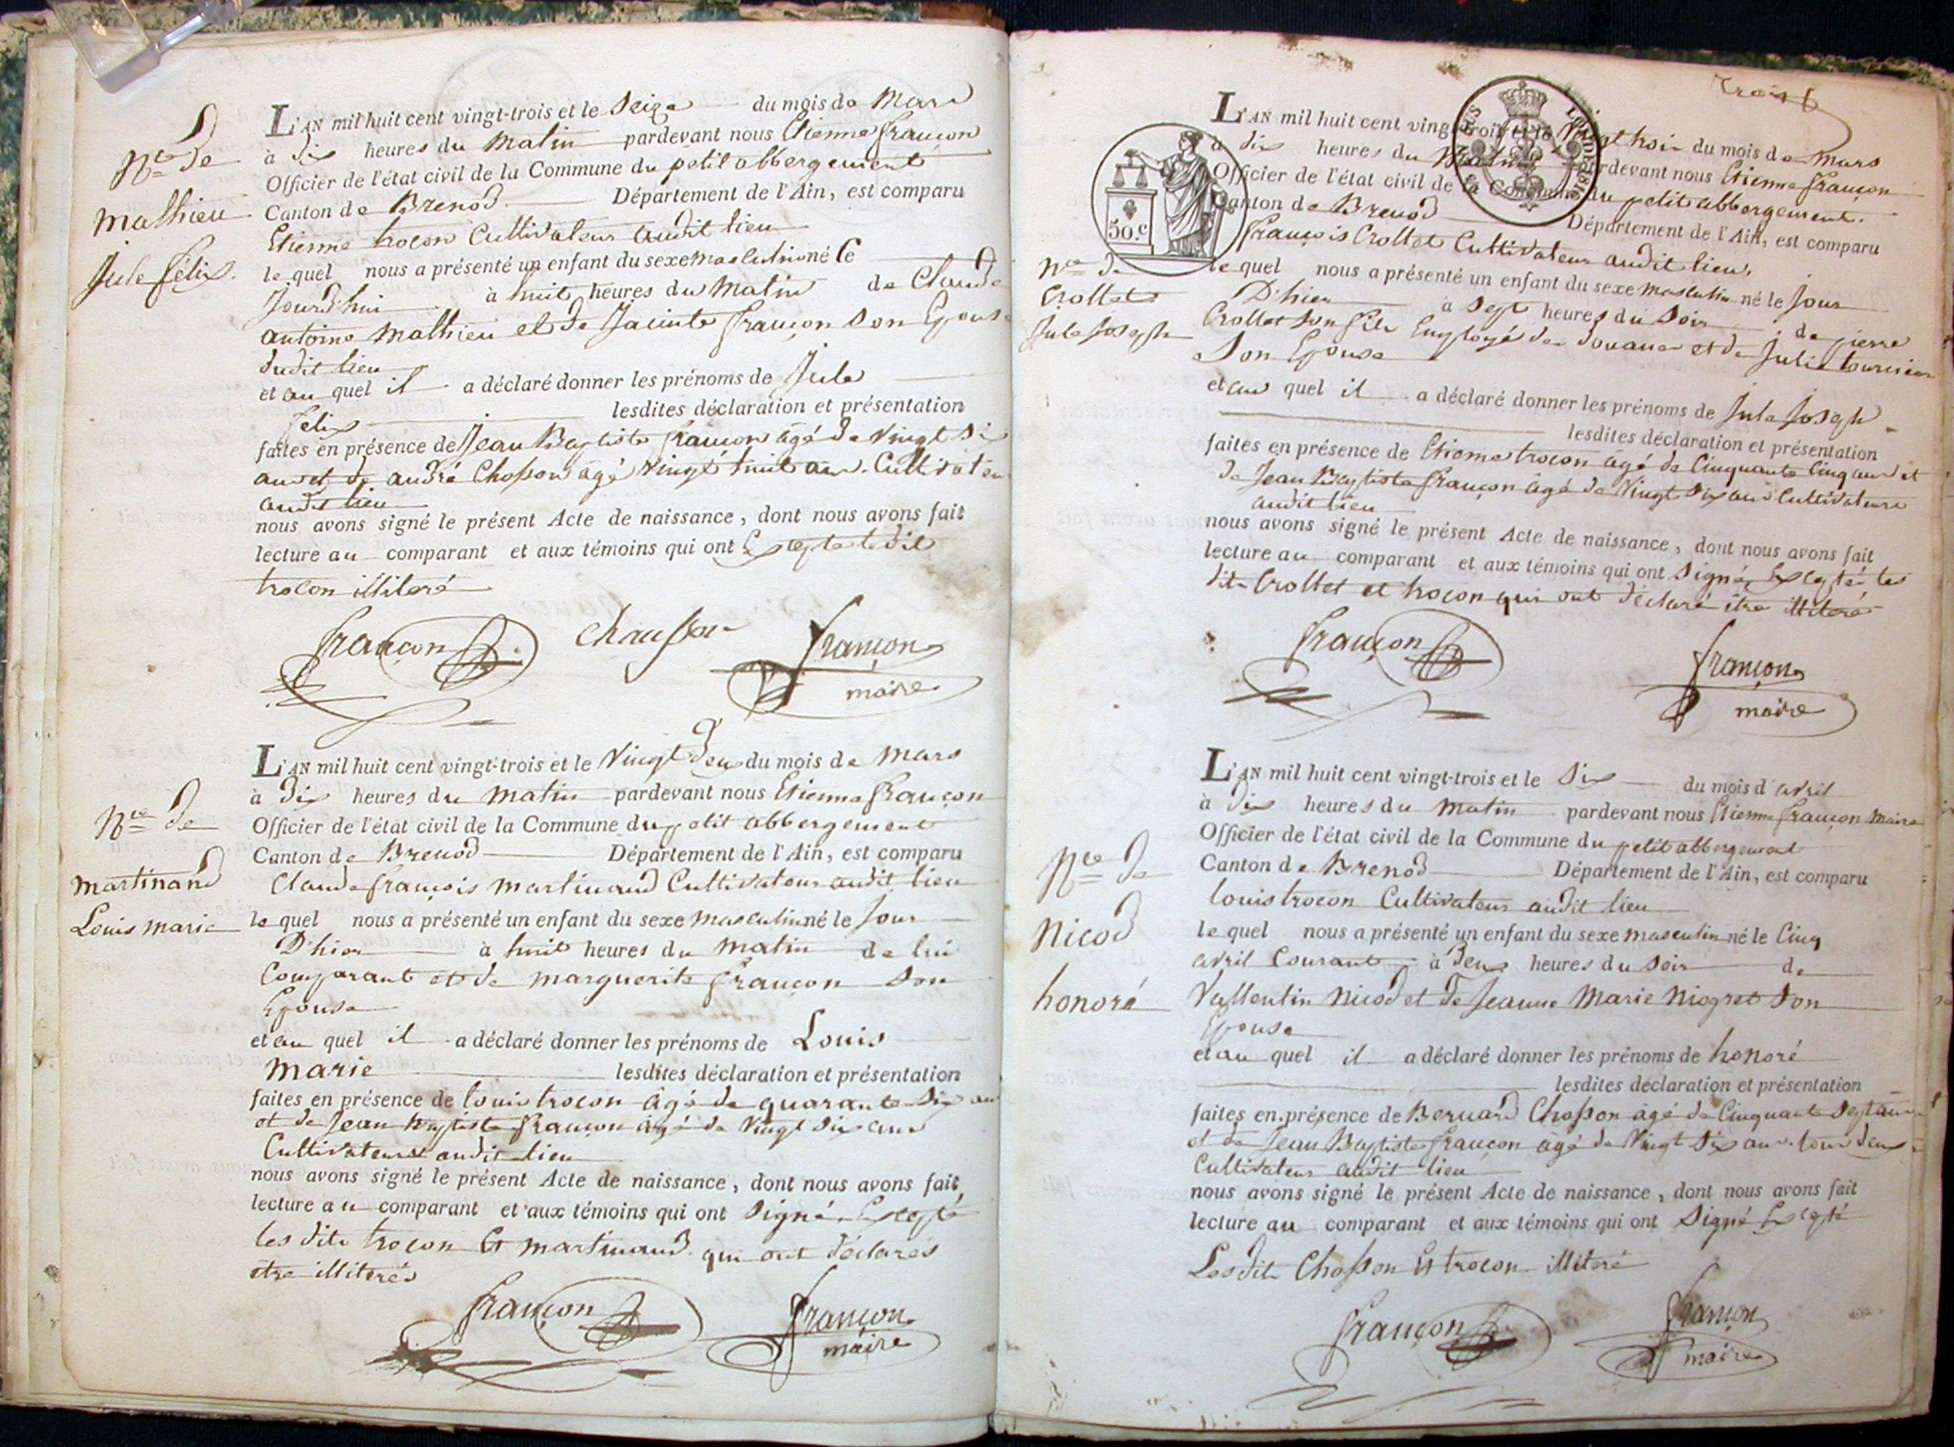 Nce de
Mathieu
Jule félix.
L'AN mil huit cent vingt-trois et le Seize du mois de Mars
à dix heures du Matin pardevant nous Etienne françon
Officier de l'état civil de la Commune du petit abbergement
Canton de Brenod Département de l'Ain, est comparu
Etienne trocon Cultivateur audit lieu
le quel nous a présenté un enfant du sexe masculin né le
Jourd'hui à huit heures du Matin de Claude
antoine Mathieu et de Jacinte françon Son Epouse
dudit lieu
et au quel il a déclaré donner les prénoms de Jule
félix lesdites déclaration et présentation
faites en présence de Jean Baptiste françon âgé de vingt Six
ans et de andré Chosson âgé vingt huit ans. Cultivateurs
audit lieu
nous avons signé le présent Acte de naissance, dont nous avons fait
lecture au comparant et aux témoins qui ont Excepté ledit
trocon illiteré
françon chausson françon
maire
Nce de
Martinand
Louis marie
L'AN mil huit cent vingt-trois et le Vingt deux du mois de Mars
à dix heures du Matin pardevant nous Etienne françon
Officier de l'état civil de la Commune du petit abbergement
Canton de Brenod Département de l'Ain, est comparu
Claude françois Martinand Cultivateur audit lieu
le quel nous a présenté un enfant du sexe masculin né le Jour
D'hier à huit heures du Matin de lui
Comparant et de Marguerite françon Son
Epouse
et au quel il a déclaré donner les prénoms de Louis
Marie lesdites déclaration et présentation
faites en présence de Louis trocon âgé de quarante Six ans
et de Jean Baptiste françon âgé de vingt Six ans
Cultivateurs audit lieu
nous avons signé le présent Acte de naissance, dont nous avons fait
lecture au comparant et aux témoins qui ont Signé, Excepté
les dits trocon Et Martinand qui ont déclarés
etre illiterés
françon françon
maire
trois
50.c
Nce de
Crollet
Jule Joseph
L'AN mil huit cent vingt-trois et le Vingt trois du mois de Mars
à dix heures du Matin pardevant nous Etienne françon
Officier de l'état civil de la Commune du petit abbergement.
Canton de Brenod Département de l'Ain, est comparu
françois Crollet Cultivateur audit lieu,
le quel nous a présenté un enfant du sexe masculin né le Jour
D'hier à Sept heures du Soir de pierre
Crollet Son fils Employé des douanes et de Julie tournier
Son Epouse
et au quel il a déclaré donner les prénoms de Jule Joseph
lesdites déclaration et présentation
faites en présence de Etienne trocon âgé de Cinquante Cinq ans et
de Jean Baptiste françon âgé de Vingt Six ans Cultivateurs
audit lieu
nous avons signé le présent Acte de naissance, dont nous avons fait
lecture au comparant et aux témoins qui ont Signé, Excepté les
dits Crollet et trocon qui ont déclaré être illiteré
françon françon
maire
Nce de
Nicod
honoré
L'AN mil huit cent vingt-trois et le Six du mois d'avril
à dix heures du Matin pardevant nous Etienne françon Maire
Officier de l'état civil de la Commune du petit abbergement
Canton de Brenod Département de l'Ain, est comparu
louis trocon Cultivateur audit lieu
le quel nous a présenté un enfant du sexe masculin né le Cinq
avril Courant à deux heures du Soir de
Vallentin Nicod et de Jeanne Marie Niogret Son
Epouse
et au quel il a déclaré donner les prénoms de honoré
lesdites déclaration et présentation
faites en présence de Bernard Chosson âgé de Cinquante Sept ans
et de Jean Baptiste françon âgé de Vingt Six ans tous deux
Cultivateur audit lieu
nous avons signé le présent Acte de naissance, dont nous avons fait
lecture au comparant et aux témoins qui ont Signé Excepté
Lesdits Chosson Et trocon illiteré
françon françon
maire